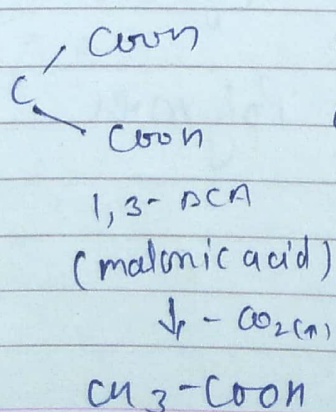 COOH
C
COOH
1,3- DCA
(malonic acid)
↓ - CO2(↑)
CH3-COOH